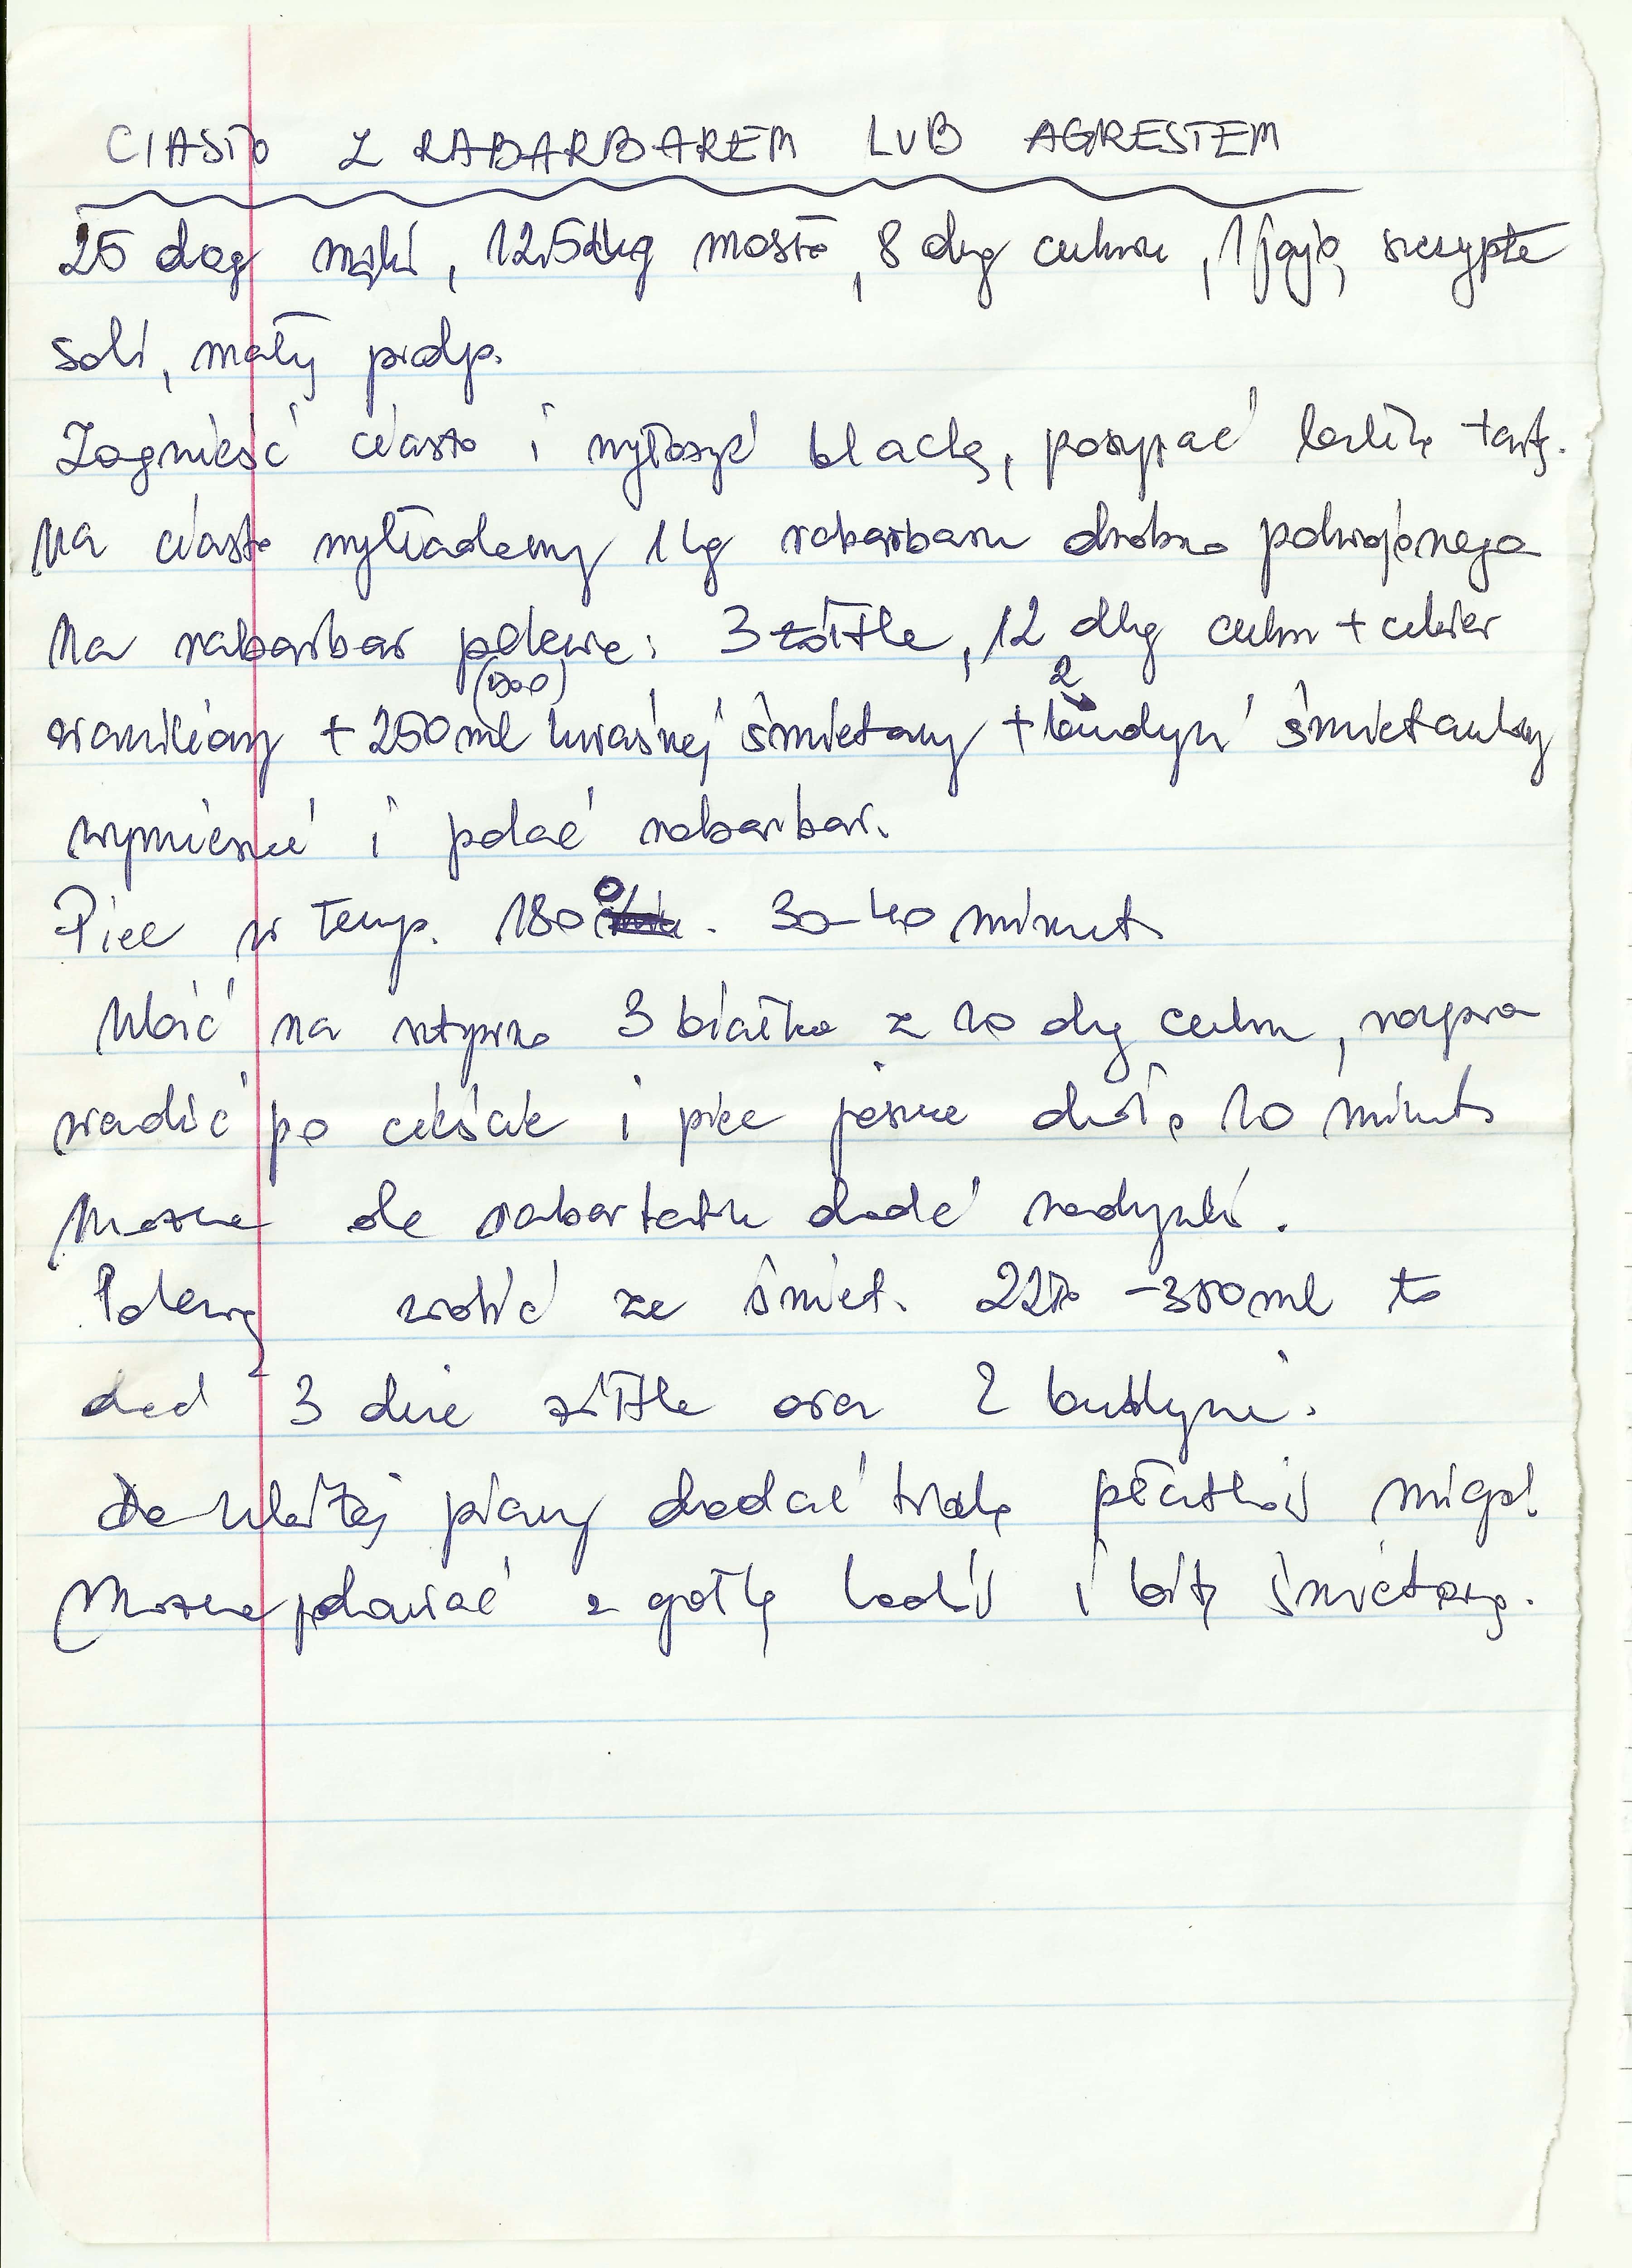 CIASTO Z RABARBAREM LUB AGRESTEM
25 dag mąki, 12,5 dkg masła, 8 dkg cukru, 1 jajo, szczypta
soli, mały prosz.
Zagnieść ciasto i wyłożyć blachę, posypać bułką tartą.
Na ciasto wykładamy 1 kg rabarbaru drobno pokrojonego
Na rabarbar polewa: 3 żółtka, 12 dkg cukru + cukier
waniliowy + 250 ml kwaśnej śmietany + budyń śmietankowy
2
wymieszać i polać rabarbar.
Piec w temp. 180°. 30-40 minut.
Ubić na sztywno 3 białka z 20 dkg cukru, rozpro
wadzić po cieście i piec jeszcze około 20 minut.
Można do rabarbaru dodać rodzynki.
Polewę zrobić ze śmiet. 22% - 350 ml to
dać 3 duże żółtka oraz 2 budynie.
Do ubitej piany dodać trochę płatków migd!
Można podawać z gałką lodów i bitą śmietaną.